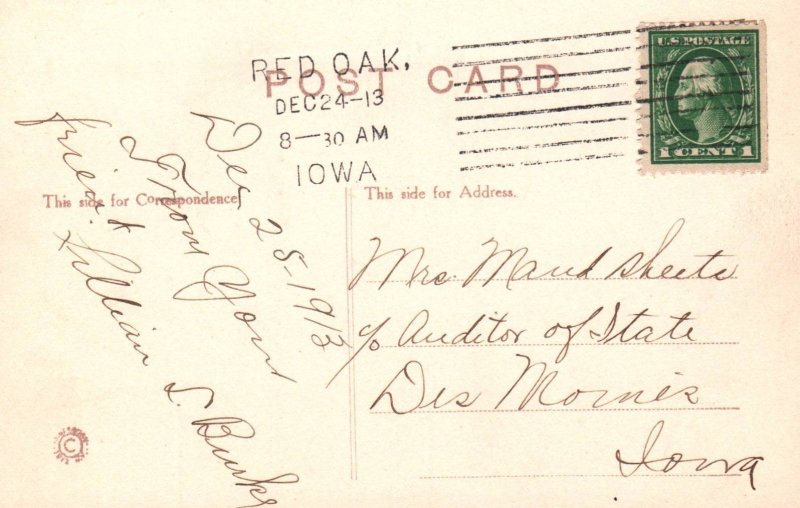 POST CARD
RED OAK,
DEC 24-13
8-30 AM
IOWA
U.S. POSTAGE
1 CENT 1
This side for Correspondence
This side for Address.
Dec 25-1913
From Your
friend
Lillian S. Burke
Mrs. Maud Sheets
c/o Auditor of State
Des Moines
Iowa
C